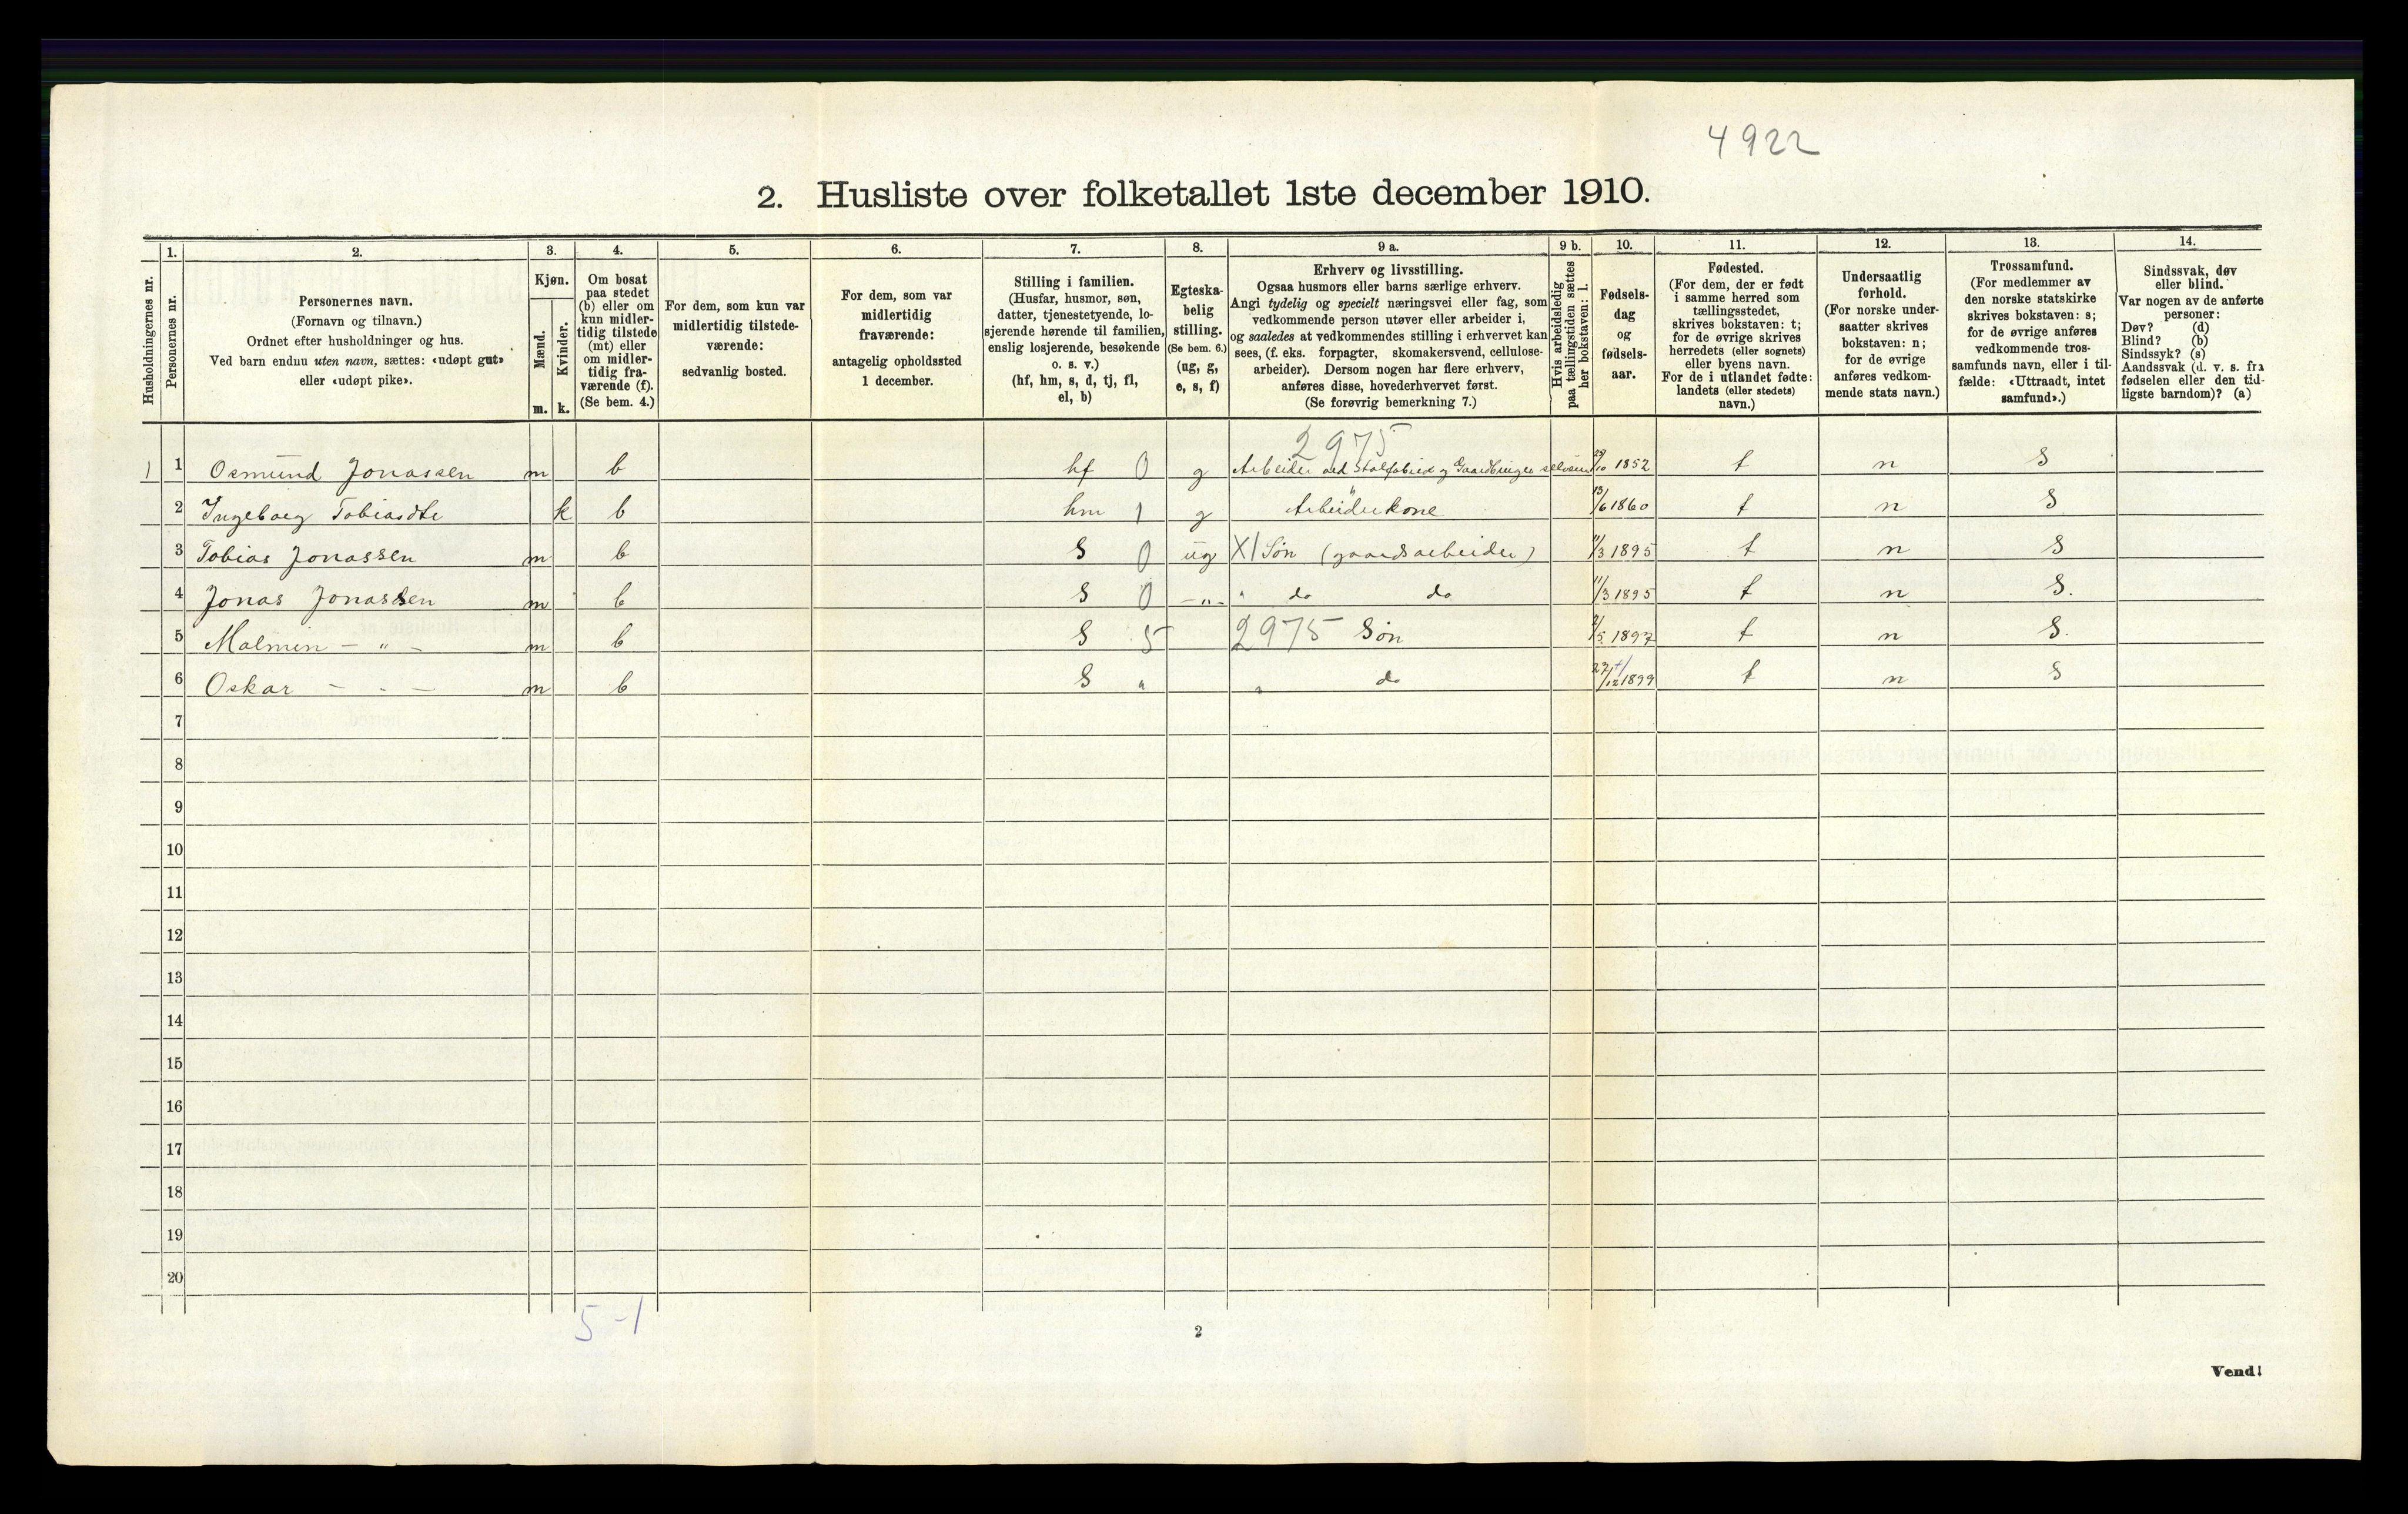 4922
2. Husliste over folketallet 1ste december 1910.
Husholdningernes nr.
1.
Personernes nr.
2.
Personernes navn.
(Fornavn og tilnavn.)
Ordnet efter husholdninger og hus.
Ved barn endnu uten navn, sættes: «udøpt gut»
eller «udøpt pike».
3.
Kjøn.
Mænd.
Kvinder.
m. k.
4.
Om bosat
paa stedet
(b) eller om
kun midler-
tidig tilstede
(mt) eller
om midler-
tidig fra-
værende (f).
(Se bem. 4.)
5.
For dem, som kun var
midlertidig tilstede-
værende:
sedvanlig bosted.
6.
For dem, som var
midlertidig
fraværende:
antagelig opholdssted
1 december.
7.
Stilling i familien.
(Husfar, husmor, søn,
datter, tjenestetyende, lo-
sjerende hørende til familien,
enslig losjerende, besøkende
o. s. v.)
(hf, hm, s, d, tj, fl,
el, b)
8.
Egteska-
belig
stilling.
(Se bem. 6.)
(ug, g,
e, s, f)
9 a.
Erhverv og livsstilling.
Ogsaa husmors eller barns særlige erhverv.
Angi tydelig og specielt næringsvei eller fag, som
vedkommende person utøver eller arbeider i,
og saaledes at vedkommendes stilling i erhvervet kan
sees, (f. eks. forpagter, skomakersvend, cellulose-
arbeider). Dersom nogen har flere erhverv,
anføres disse, hovederhvervet først.
(Se forøvrig bemerkning 7.)
9 b.
Hvis arbeidsledig
paa tællingstiden sættes
her bokstaven: l.
10.
Fødsels-
dag
og
fødsels-
aar.
11.
Fødested.
(For dem, der er født
i samme herred som
tællingsstedet,
skrives bokstaven: t;
for de øvrige skrives
herredets (eller sognets)
eller byens navn.
For de i utlandet fødte:
landets (eller stedets)
navn.)
12.
Undersaatlig
forhold.
(For norske under-
saatter skrives
bokstaven: n;
for de øvrige
anføres vedkom-
mende stats navn.)
13.
Trossamfund.
(For medlemmer av
den norske statskirke
skrives bokstaven: s;
for de øvrige anføres
vedkommende tros-
samfunds navn, eller i til-
fælde: «Uttraadt, intet
samfund».)
14.
Sindssvak, døv
eller blind.
Var nogen av de anførte
personer:
Døv? (d)
Blind? (b)
Sindssyk? (s)
Aandssvak (d. v. s. fra
fødselen eller den tid-
ligste barndom)? (a)
2975
1 1 Osmund Jonassen m b hf 0 g Arbeider ved Stolfabrik og Gaardbruger selveier 1852 t n S
2 Ingeborg Tobiasdtr k b hm 1 g Arbeiderkone 13/6 1860 t n S
3 Tobias Jonassen m b S 0 ug X1 Søn (gaardsarbeider) 11/3 1895 t n S
4 Jonas Jonassen m b S 0 -"- " do do 11/3 1895 t n S.
5 Malmin - " - m b S 5 2975 Søn 2/5 1897 t n S.
6 Oskar - " - m b S " " do 27/12 1899 t n S
7
8
9
10
11
12
13
14
15
16
17
18
19
20
5-1
2
Vend!